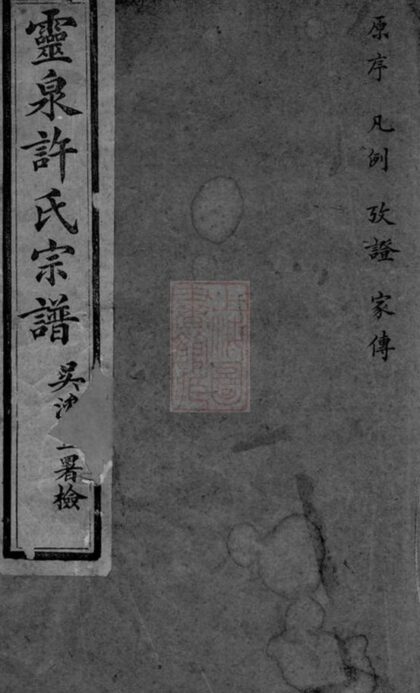 原序 凡例 攷證 家傳
靈泉許氏宗譜
吳汐
署檢